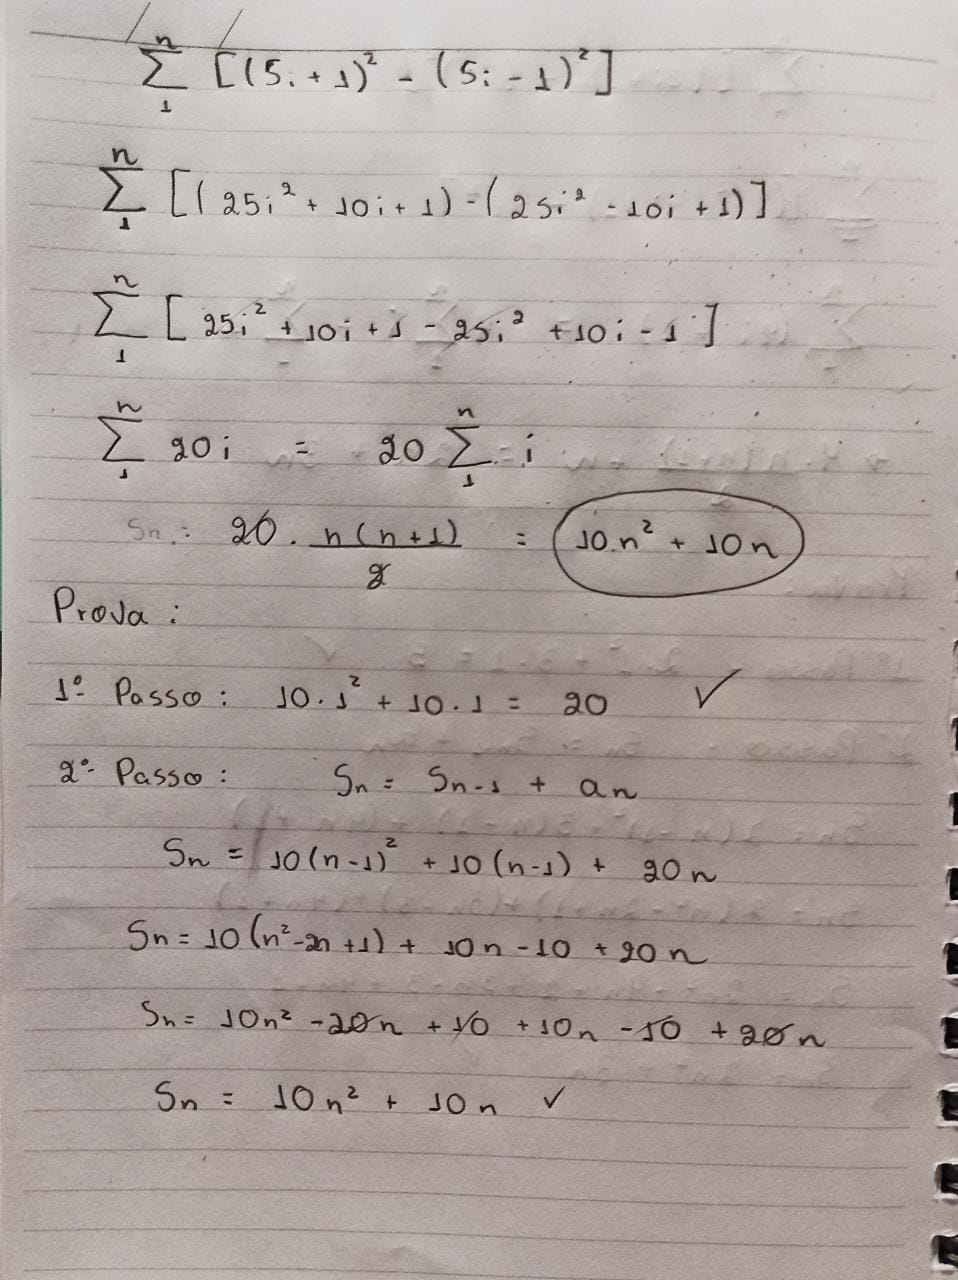 n
∑ [(5i + 1)² - (5i - 1)²]
1
n
∑ [(25i² + 10i + 1) - (25i² - 10i + 1)]
1
n
∑ [25i² + 10i + 1 - 25i² + 10i - 1]
1
n n
∑ 20i = 20 ∑ i
1 1
Sn = 20 . n(n+1) = 10.n² + 10n
2
Prova :
1º Passo : 10.1² + 10.1 = 20 ✓
2º Passo : Sn = Sn-1 + an
Sn = 10(n-1)² + 10(n-1) + 20n
Sn = 10(n²-2n+1) + 10n - 10 + 20n
Sn = 10n² - 20n + 10 + 10n - 10 + 20n
Sn = 10n² + 10n ✓